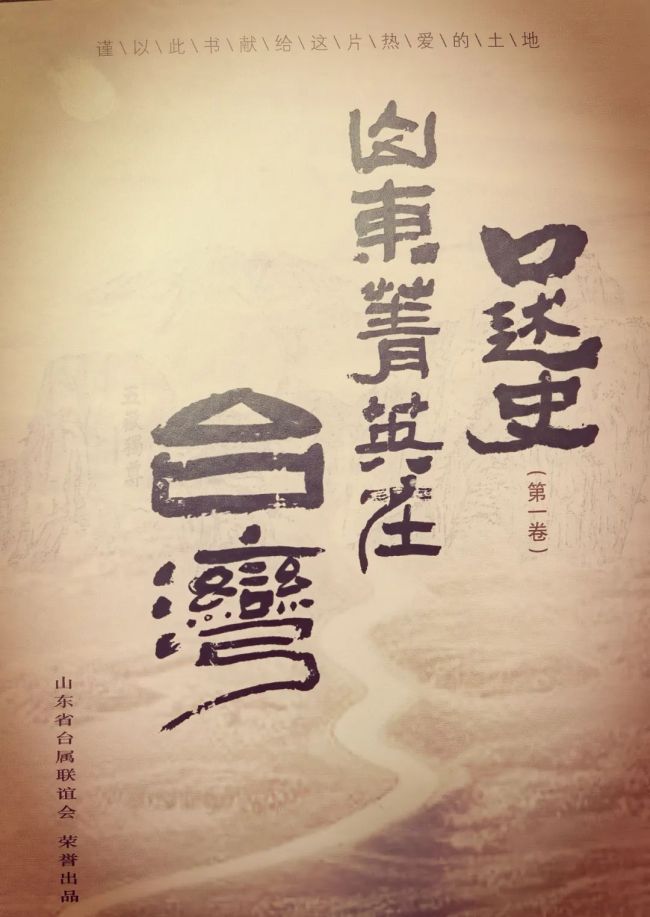 谨\以\此\书\献\给\这\片\热\爱\的\土\地
口述史
(第一卷)
山東菁英在
台灣
五嶽獨尊
山东省台属联谊会 荣誉出品